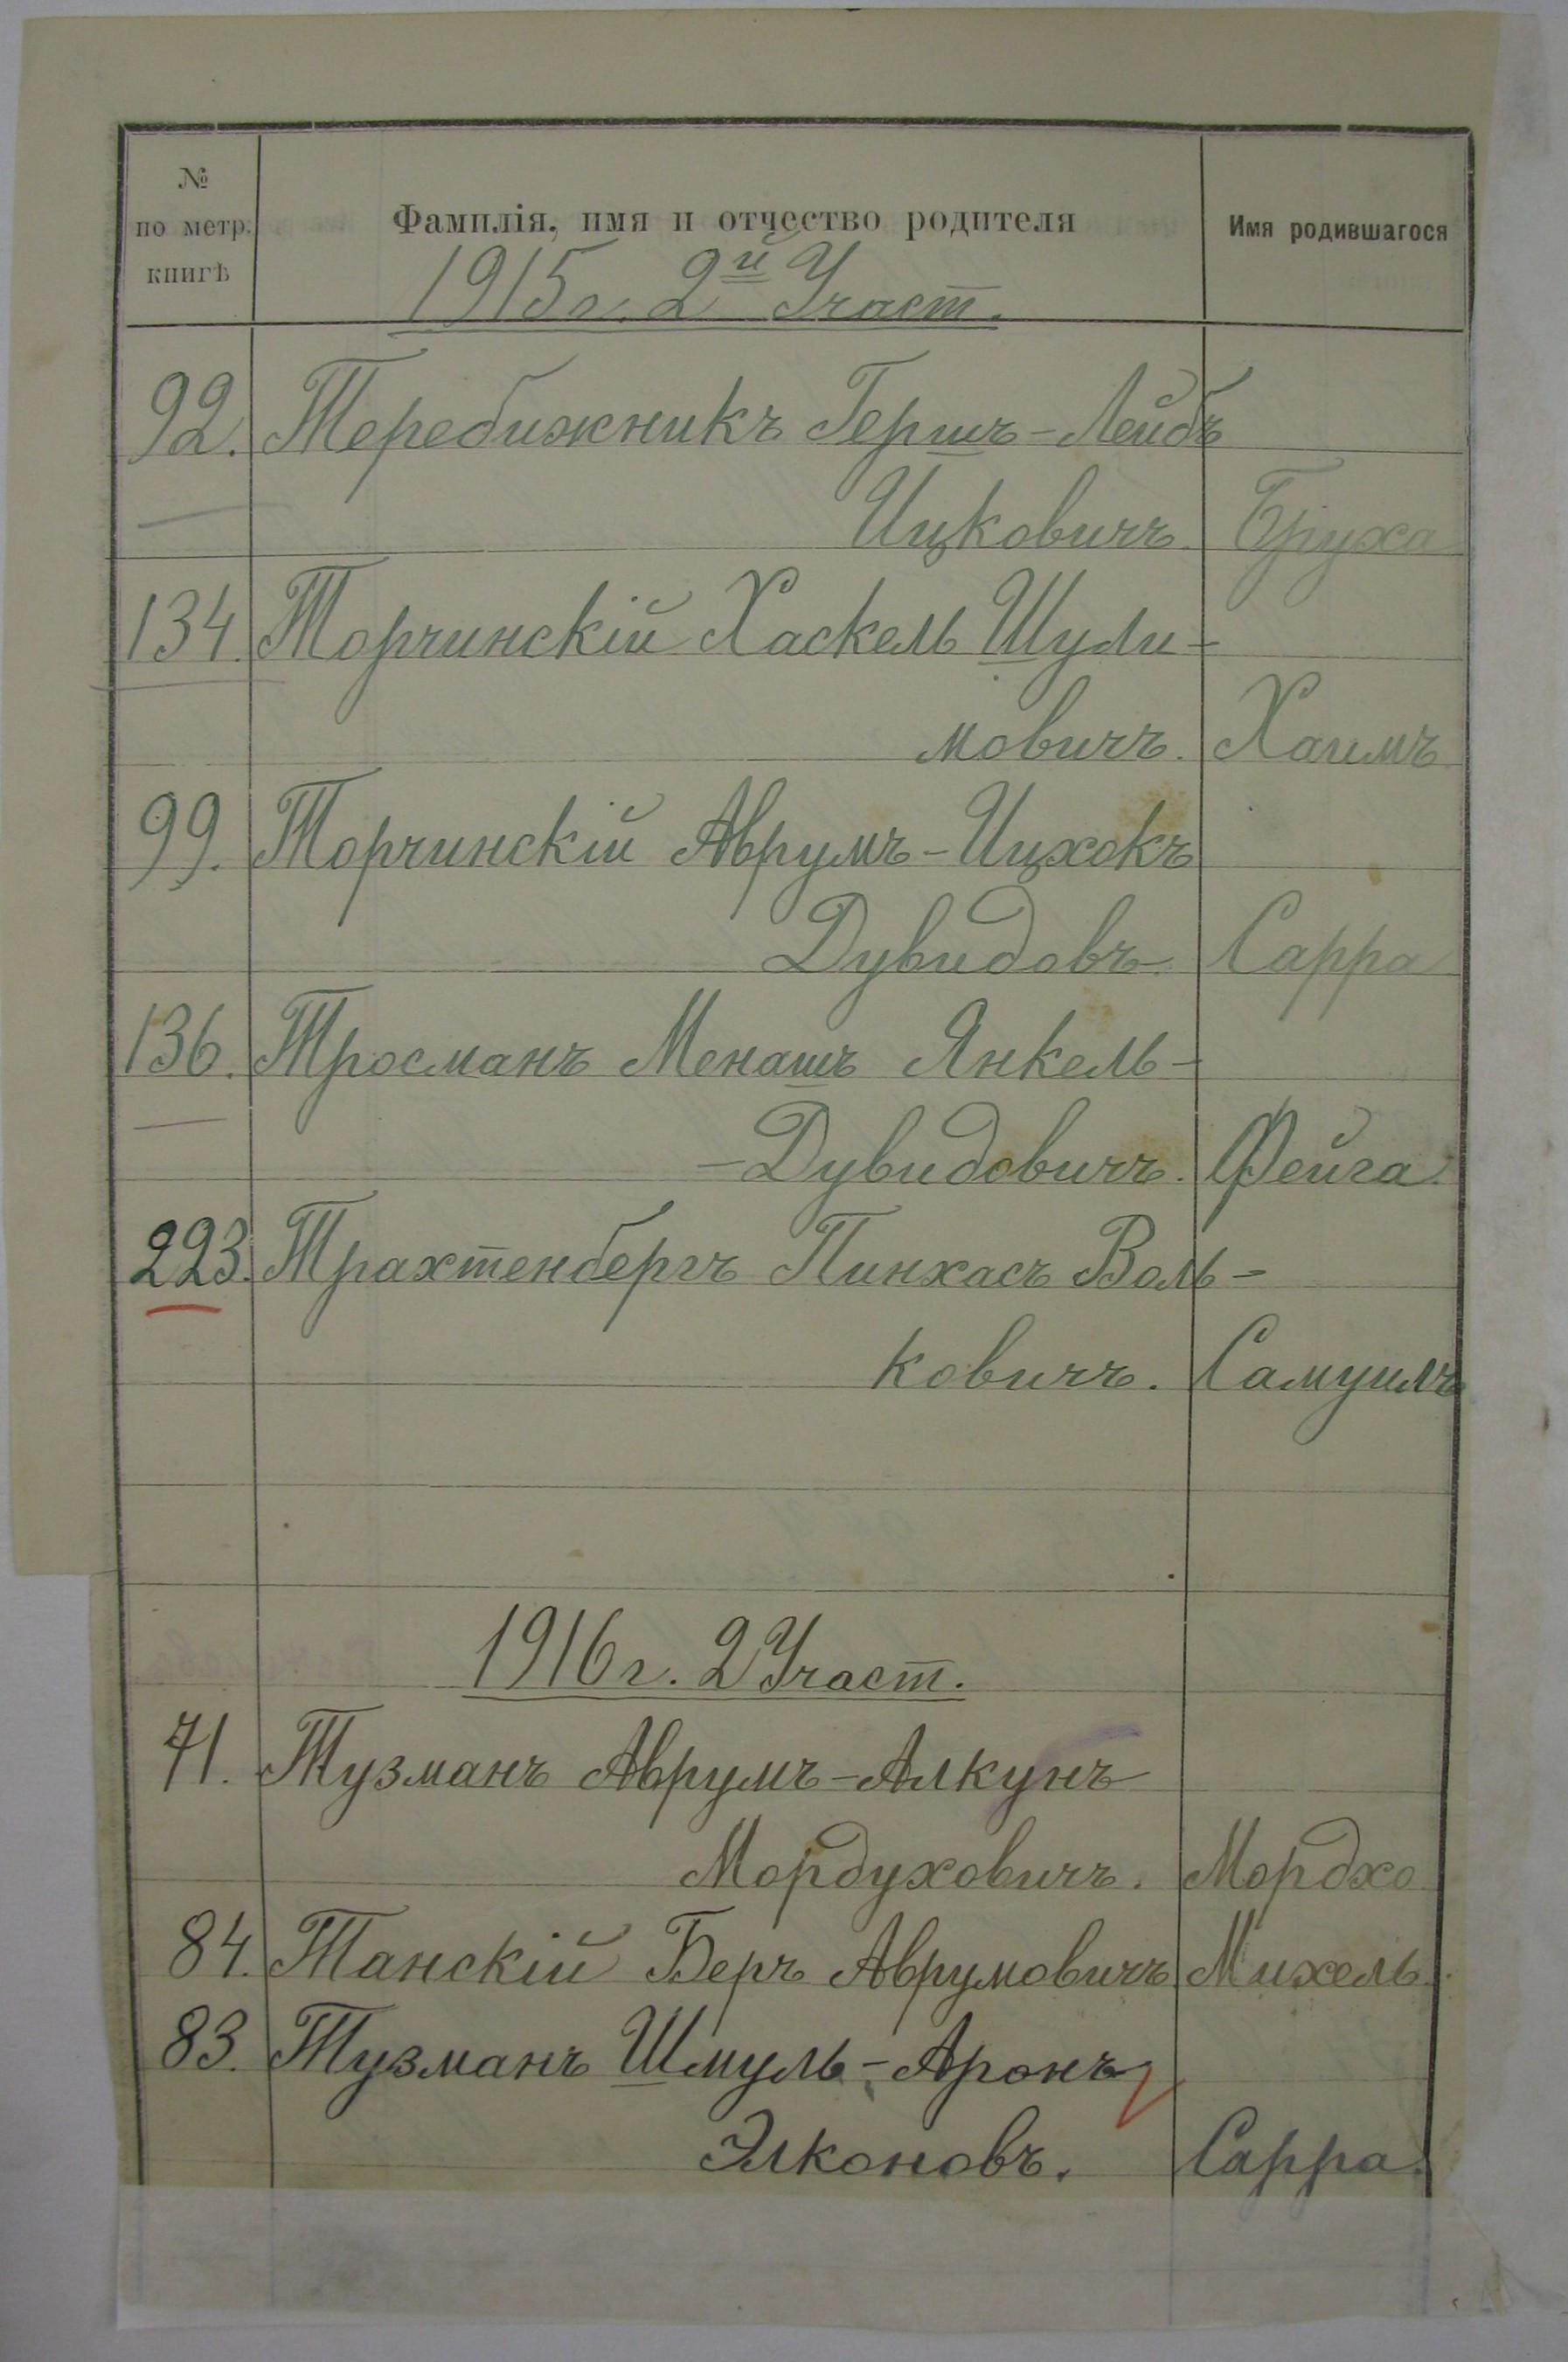 № по метр. книгѣ
Фамилія, имя и отчество родителя
Имя родившагося
1915 г. 2й Участ.
92. Теребижникъ Гершъ-Лейбъ
Ицковичъ. Бруха
134. Торчинскій Хаскель Шули-
мовичъ. Хаимъ
99. Торчинскій Аврумъ-Ицхокъ
Дувидовъ. Сарра
136. Тросманъ Менашъ Янкель-
-Дувидовичъ. Фейга.
223. Трахтенбергъ Пинхасъ Воль-
ковичъ. Самуилъ
1916 г. 2 Участ.
71. Тузманъ Аврумъ-Алкунъ
Мордуховичъ. Мордхо
84. Танскій Беръ Аврумовичъ Михель.
83. Тузманъ Шмуль-Аронъ
Элконовъ. Сарра.